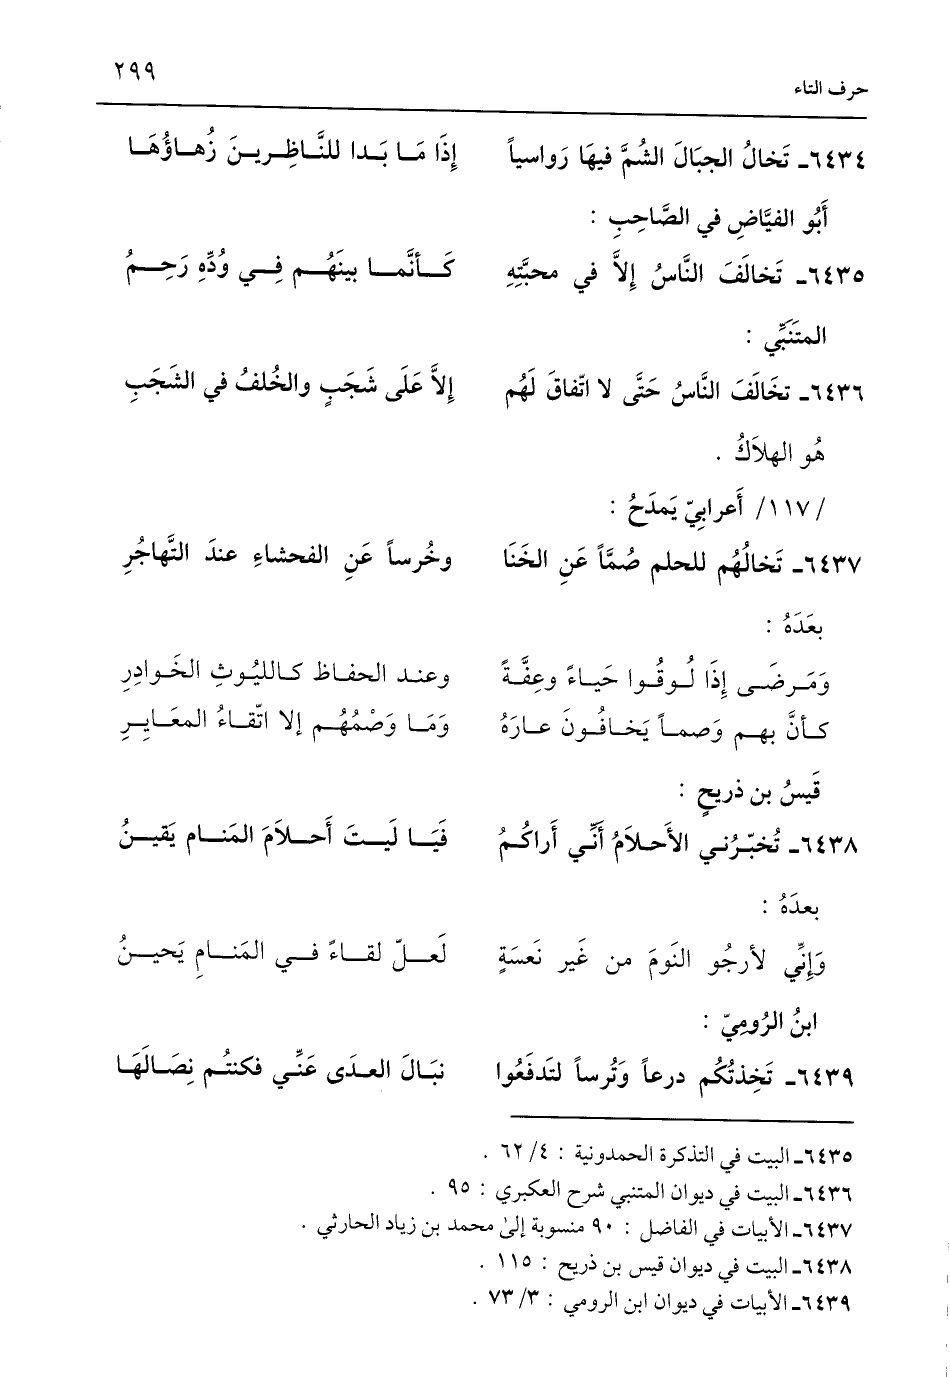 ٢٩٩
حرف التاء
٦٤٣٤ـ تَخالُ الجبَالَ الشُمَّ فيهَا رَواسياً إِذَا مَا بَدا للنَّاظِرينَ زُهاؤُهَا
أَبُو الفيَّاضِ في الصَّاحِبِ :
٦٤٣٥ـ تَخالَفَ النَّاسُ إِلاَّ في محبَّتِهِ كَأنَّما بينَهُم فِي وُدِّهِ رَحِمُ
المتَنَبِّي :
٦٤٣٦ـ تخَالَفَ النَّاسُ حَتَّى لا اتّفاقَ لَهُم إِلاَّ عَلَى شَجَبٍ والخُلفُ في الشَجَبِ
هُو الهلاَكُ .
/١١٧/ أَعرابيّ يَمدَحُ :
٦٤٣٧ـ تَخالُهُم للحلم صُمَّاً عَنِ الخَنَا وخُرساً عَنِ الفحشاءِ عندَ التَّهاجُرِ
بعَدَهُ :
وَمَرضَى إِذَا لُوقُوا حيَاءً وعِفَّةً وعند الحفاظ كالليُوثِ الخَوادِرِ
كأنَّ بهم وَصماً يَخافُونَ عارَهُ وَمَا وَصْمُهُم إلا اتّقاءُ المعَايِرِ
قَيسُ بن ذريحٍ :
٦٤٣٨ـ تُخبّرُني الأَحلاَمُ أنِّي أَراكُمُ فَيَا لَيتَ أَحلاَمَ المَنام يَقينُ
بعدَهُ :
وَإِنِّي لأرجُو النَومَ من غَير نَعسَةٍ لَعلّ لقاءً في المَنامِ يَحينُ
ابنُ الرُومِيّ :
٦٤٣٩ـ تَخِذتُكُم درعاً وَتُرساً لتَدفَعُوا نبَالَ العدَى عَنِّي فكنتُم نِصَالَهَا
٦٤٣٥ـ البيت في التذكرة الحمدونية : ٤/ ٦٢ .
٦٤٣٦ـ البيت في ديوان المتنبي شرح العكبري : ٩٥ .
٦٤٣٧ـ الأبيات في الفاضل : ٩٠ منسوبة إلىٰ محمد بن زياد الحارثي .
٦٤٣٨ـ البيت في ديوان قيس بن ذريح : ١١٥ .
٦٤٣٩ـ الأبيات في ديوان ابن الرومي : ٣/ ٧٣ .